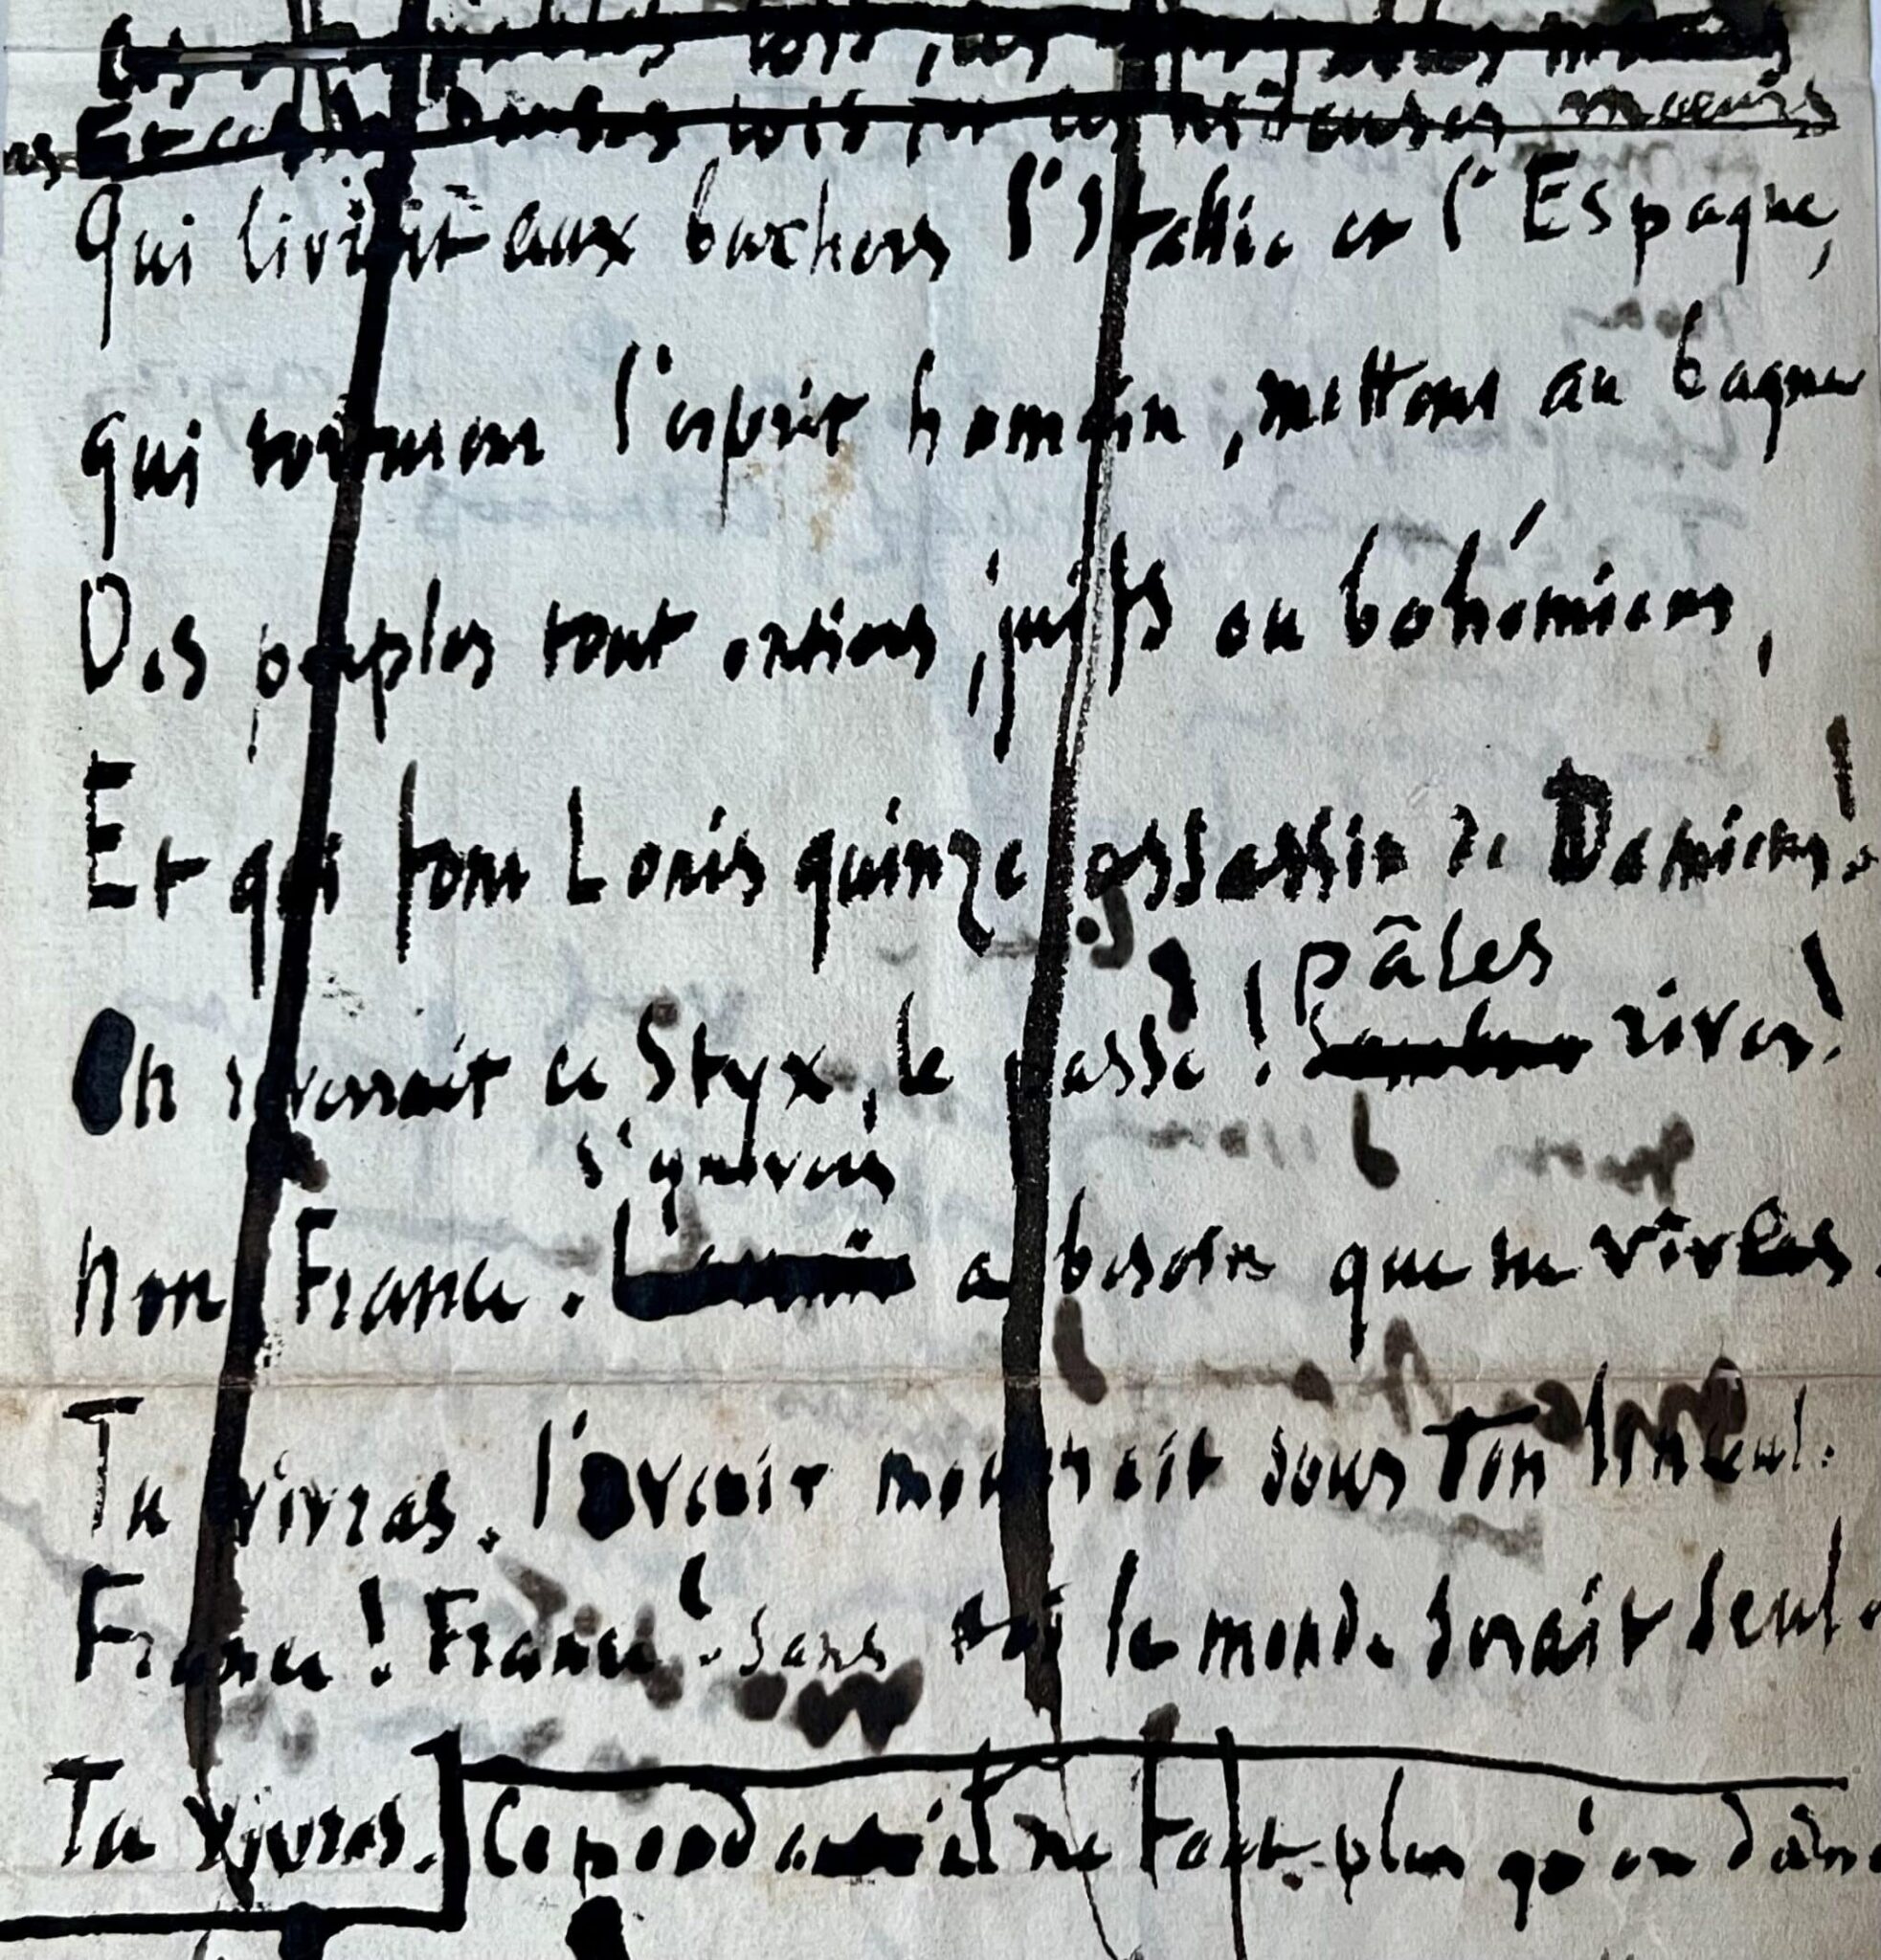 Et ces hideuses lois sur ces hideuses mœurs
Qui livrait aux buchers l'Italie et l'Espagne,
qui torturent l'esprit humain, mettent au bagne
Des peuples tout entiers, juifs ou bohémiens,
Et qui font Louis quinze assassin de Damiens!
pâles
On reverrait ce Styx, le passé! sombres rives!
s'ignivers
Non France. L'univers a besoin que tu vives.
Tu vivras. l'avenir mourrait sous ton linceul.
France! France! sans toi le monde serait seul.
Tu vivras. Cependant il ne faut plus qu'on